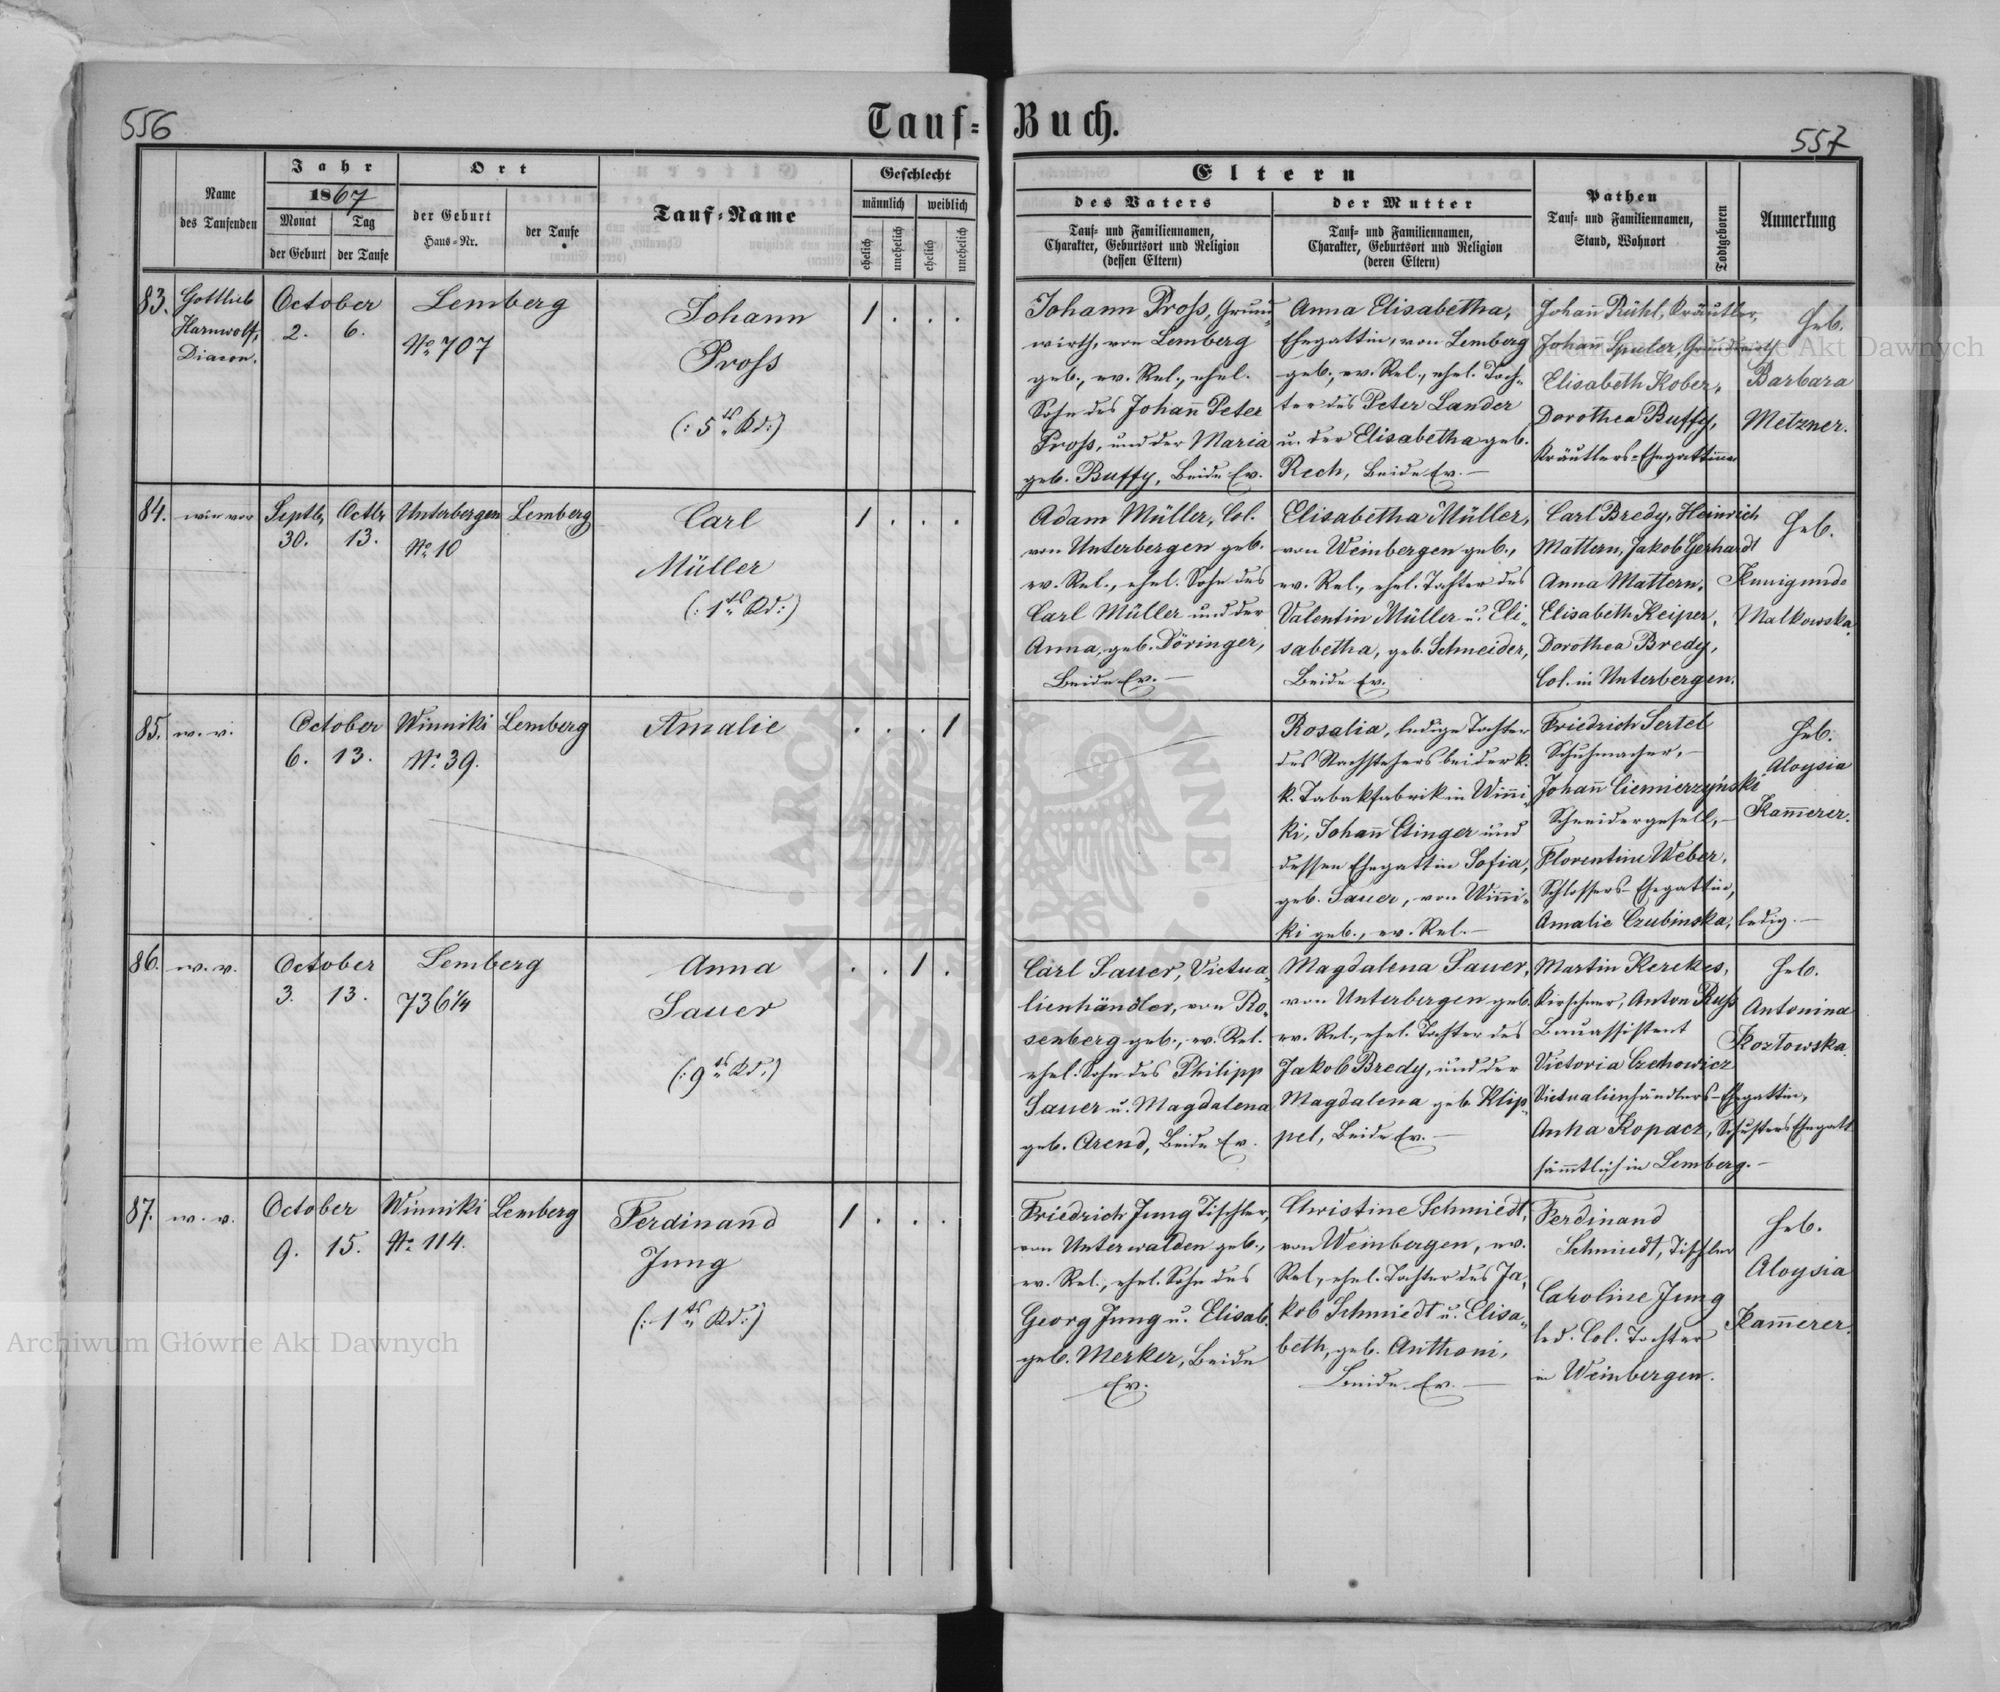 556
Tauf-Buch.
557
Name
des Taufenden
Jahr
1867
Monat
Tag
der Geburt
der Taufe
Ort
der Geburt
Haus-Nr.
der Taufe
Tauf-Name
Geschlecht
männlich
weiblich
ehelich
unehelich
ehelich
unehelich
Eltern
des Vaters
Tauf- und Familiennamen,
Charakter, Geburtsort und Religion
(dessen Eltern)
der Mutter
Tauf- und Familiennamen,
Charakter, Geburtsort und Religion
(deren Eltern)
Pathen
Tauf- und Familiennamen,
Stand, Wohnort
Todtgeboren
Anmerkung
83.
Gottlieb
Harnwolf,
Diacon.
October
2. 6.
Lemberg
No 707
Johann
Pross
(: 5tes Kd :)
1 . . .
Johann Pross, Grund-
wirth, von Lemberg
geb., ev. Rel., ehel.
Sohn des Johann Peter
Pross, und der Maria
geb. Buffy, Beide Ev.
Anna Elisabetha,
Ehegattin, von Lemberg
geb., ev. Rel., ehel. Toch-
ter des Peter Lander
u. der Elisabetha geb.
Rech, Beide Ev. —
Johann Rühl, Kräutler,
Johann Spuler, Grundwirth
Elisabeth Kober,
Dorothea Buffy,
Kräutlers-Ehegattinnen
Heb.
Barbara
Metzner.
84.
wie vor
Septb. Octbr
30. 13.
Unterbergen
No 10
Lemberg
Carl
Müller
(: 1tes Kd :)
1 . . .
Adam Müller, Col.
von Unterbergen geb.
ev. Rel., ehel. Sohn des
Carl Müller und der
Anna, geb. Döringer,
Beide Ev. —
Elisabetha Müller,
von Weinbergen geb.,
ev. Rel., ehel. Tochter des
Valentin Müller u. Eli-
sabetha, geb. Schneider,
Beide Ev.
Carl Bredy, Heinrich
Mattern, Jakob Gerhardt
Anna Mattern,
Elisabeth Keiper,
Dorothea Bredy,
Col. in Unterbergen.
Heb.
Kunigunde
Malkowska.
85.
w. v.
October
6. 13.
Winniki
No 39.
Lemberg
Amalie
. . . 1
Rosalia, ledige Tochter
des Nachstehers bei der k.
k. Tabakfabrik in Winni-
ki, Johann Etinger und
dessen Ehegattin Sofia,
geb. Sauer, von Winni-
ki geb., ev. Rel. —
Friedrich Sertel
Schuhmacher, —
Johann Ciemierzyński
Schneidergesell, —
Florentine Weber,
Schlossers-Ehegattin,
Amalie Czubinska, ledig. —
Heb.
Aloysia
Kammerer.
86.
w. v.
October
3. 13.
Lemberg
736 1/4
Anna
Sauer
(: 9tes Kd :)
. . 1 .
Carl Sauer, Victua-
lienhändler, von Ro-
senberg geb., ev. Rel.
ehel. Sohn des Philipp
Sauer u. Magdalena
geb. Arend, Beide Ev.
Magdalena Sauer,
von Unterbergen geb.
ev. Rel., ehel. Tochter des
Jakob Bredy, und der
Magdalena geb. Klip-
pel, Beide Ev. —
Martin Kerekes,
Kirschner, Anton Russ
Bauassistent
Victoria Czehowicz
Victualienhändlers-Ehegattin,
Anna Kopacz, Schusters Ehegatt
sämmtlich in Lemberg. —
Heb.
Antonina
Kozłowska
87.
w. v.
October
9. 15.
Winniki
No 114.
Lemberg
Ferdinand
Jung
(: 1tes Kd :)
1 . . .
Friedrich Jung Tischler,
von Unterwalden geb.,
ev. Rel., ehel. Sohn des
Georg Jung u. Elisab.
geb. Merker, Beide
Ev.
Christine Schmiedt,
von Weinbergen, ev.
Rel., ehel. Tochter des Ja-
kob Schmiedt u. Elisa-
beth, geb. Anthoni,
Beide Ev. —
Ferdinand
Schmiedt, Tischler
Caroline Jung
led. Col. Tochter
in Weinbergen.
Heb.
Aloysia
Kammerer.
Archiwum Główne Akt Dawnych
Archiwum Główne Akt Dawnych